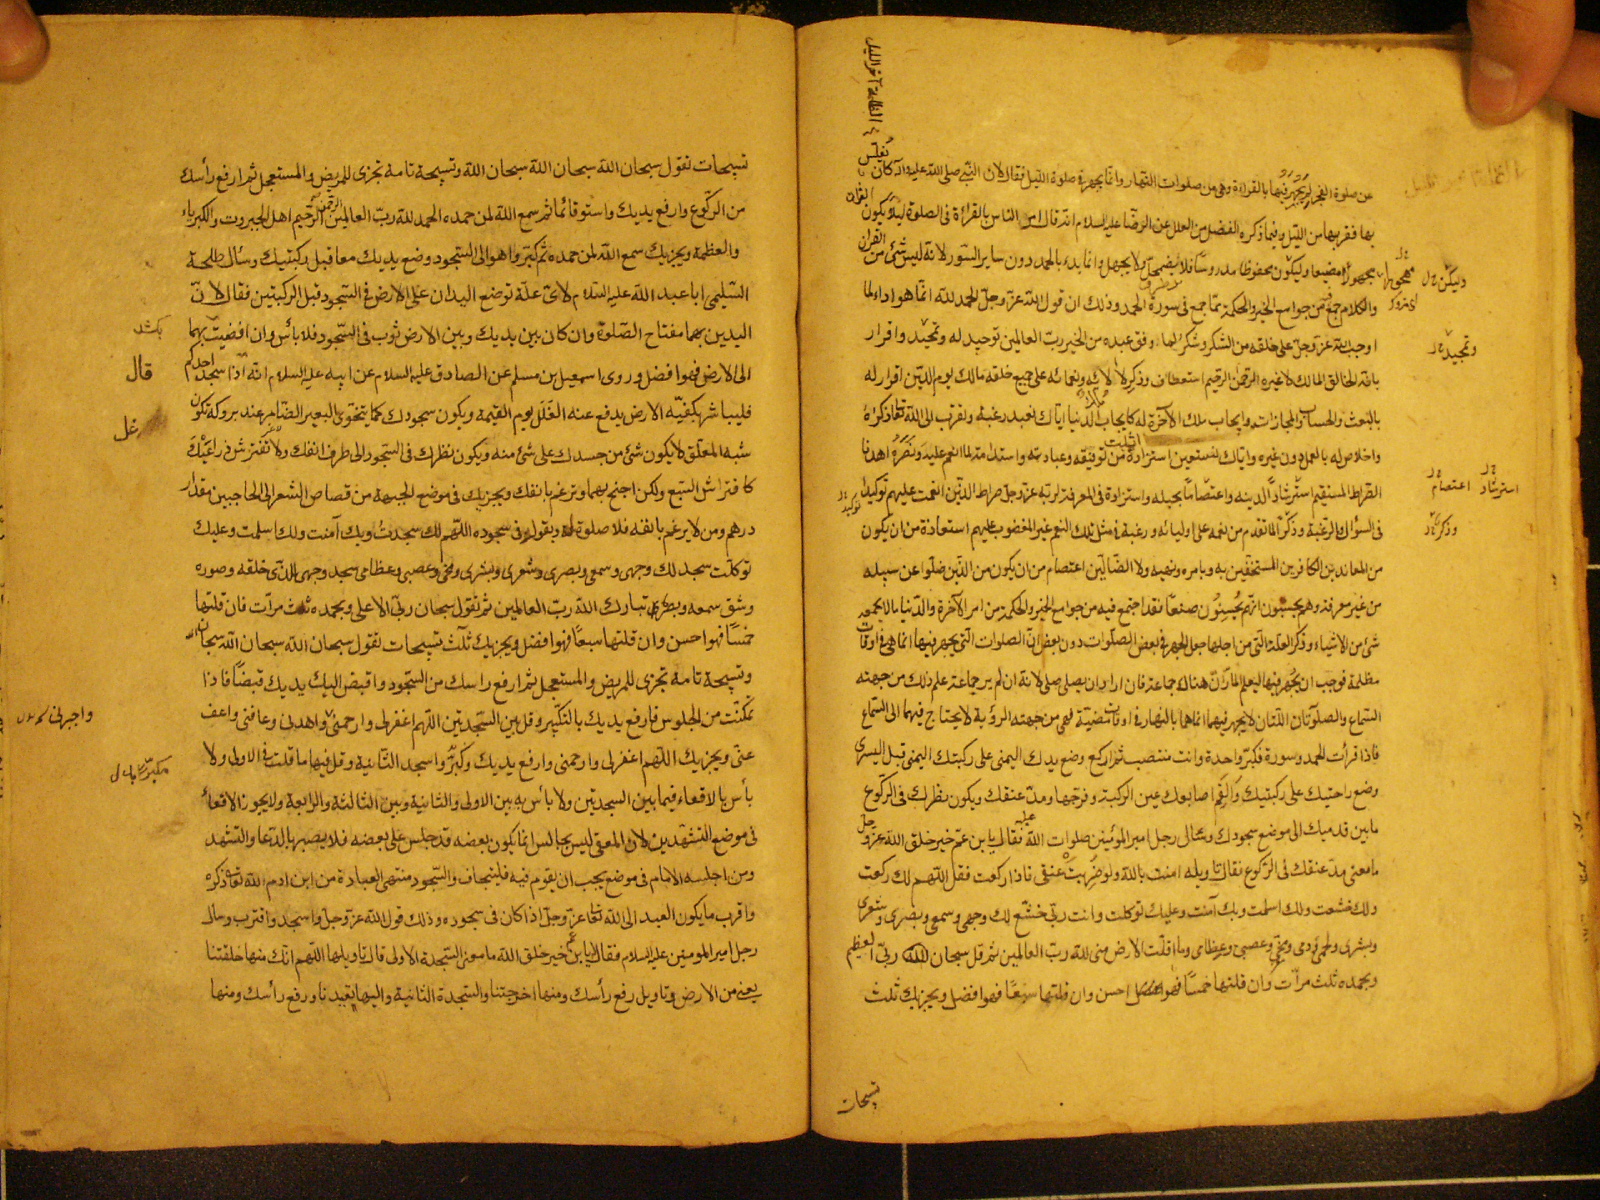 عن صلوة الفجر لم يجهر فيها بالقراءة وهى من صلوات النهار وانما يجهر فى صلوة الليل فقال لان النبى صلى الله عليه وآله كان يغلس
بها فقربها من الليل وفيما ذكره الفضل من العلل عن الرضا عليه السلام انه قال امر الناس بالقراءة فى الصلوة لئلا يكون القرآن
مهجورا مضيعا وليكون محفوظا مدروسا فلا يضمحل ولا يجهل وانما بدء بالحمد دون ساير السور لانه ليس شئ من القرآن
والكلام جمع فيه من جوامع الخير والحكمة ما جمع فى سورة الحمد وذلك ان قول الله عز وجل الحمد لله انما هو اداء لما
اوجب الله عز وجل على خلقه من الشكر وشكر لما وفق عبده من الخير رب العالمين توحيد له وتحميد واقرار
بانه الخالق المالك لا غيره الرحمن الرحيم استعطاف وذكر لآلائه ونعمائه على جميع خلقه مالك يوم الدين اقرار له
بالبعث والحساب والمجازات وايجاب ملك الآخرة له كايجاب ملك الدنيا اياك نعبد رغبة وتقرب الى الله تعالى ذكره
واخلاص له بالعمل دون غيره واياك نستعين استزادة من توفيقه وعبادته واستدامة لما انعم عليه ونصره اهدنا
الصراط المستقيم استرشادا لدينه واعتصاما بحبله واستزادة فى المعرفة لربه عز وجل صراط الذين انعمت عليهم توكيدا
فى السؤال والرغبة وذكر لما تقدم من نعمه على اوليائه ورغبة فى مثل تلك النعم غير المغضوب عليهم استعاذة من ان يكون
من المعاندين الكافرين المستخفين به وبامره ونهيه ولا الضالين اعتصام من ان يكون من الذين ضلوا عن سبيله
من غير معرفة وهم يحسبون انهم يحسنون صنعا فقد اجتمع فيه من جوامع الخير والحكمة من امر الآخرة والدنيا ما لا يجمعه
شئ من الاشياء وذكر العلة التى من اجلها جعل الجهر فى بعض الصلوات دون بعض ان الصلوات التى يجهر فيها انما هى فى اوقات
مظلمة فوجب ان يجهر فيها ليعلم المار ان هناك جماعة فان اراد ان يصلى صلى لانه ان لم ير جماعة علم ذلك من جهة
السماع والصلوتان اللتان لا يجهر فيهما انما هما بالنهار فى اوقات مضيئة فهى من جهة الرؤية لا يحتاج فيهما الى السماع
فاذا قرات الحمد وسورة فكبر واحدة وانت منتصب ثم اركع وضع يدك اليمنى على ركبتك اليمنى قبل اليسرى
وضع راحتيك على ركبتيك والقم اصابعك عين الركبة وفرجها ومد عنقك ويكون نظرك فى الركوع
ما بين قدميك الى موضع سجودك وسال رجل امير المؤمنين صلوات الله عليه فقال يا بن عم خير خلق الله عز وجل
ما معنى مد عنقك فى الركوع فقال تاويله امنت بالله ولو ضربت عنقى فاذا ركعت فقل اللهم لك ركعت
ولك خشعت ولك اسلمت وبك آمنت وعليك توكلت وانت ربى خشع لك وجهى وسمعى وبصرى وشعرى
وبشرى ولحمى ودمى ومخى وعصبى وعظامى وما اقلت الارض منى لله رب العالمين ثم قل سبحان ربى العظيم
وبحمده ثلث مرات وان قلتها خمسا فهو احسن وان قلتها سبعا فهو افضل ويجزيك ثلث
تسبيحات
وتمجيد
استرشاد اعتصام
تسبيحات تقول سبحان الله سبحان الله سبحان الله وتسبيحة تامة تجزى للمريض والمستعجل ثم ارفع رأسك
من الركوع وارفع يديك واستو قائما ثم قل سمع الله لمن حمده الحمد لله رب العالمين الرحمن الرحيم اهل الجبروت والكبرياء
والعظمة ويجزيك سمع الله لمن حمده ثم كبر واهو الى السجود وضع يديك معا قبل ركبتيك وسأل طلحة
السلمى ابا عبد الله عليه السلام لاى علة توضع اليدان على الارض فى السجود قبل الركبتين فقال لان
اليدين بهما مفتاح الصلوة وان كان بين يديك وبين الارض ثوب فى السجود فلا بأس وان افضيت بهما
الى الارض فهو افضل وروى اسمعيل بن مسلم عن الصادق عليه السلام عن ابيه عليه السلام انه اذا سجد احدكم
فليباشر بكفيه الارض يدفع عنه الغلل يوم القيمة ويكون سجودك كما يتخوى البعير الضامر عند بروكه تكون
شبه المعلق لا يكون شئ من جسدك على شئ منه ويكون نظرك فى السجود الى طرف انفك ولا تفترش ذراعيك
كافتراش السبع ولكن اجنح بهما وترغم بانفك ويجزيك فى موضع الجبهة من قصاص الشعر الى الحاجبين مقدار
درهم ومن لا يرغم بانفه فلا صلوة له ويقول فى سجوده اللهم لك سجدت وبك آمنت ولك اسلمت وعليك
توكلت سجد لك وجهى وسمعى وبصرى وشعرى وبشرى ومخى وعصبى وعظامى سجد وجهى للذى خلقه وصوره
وشق سمعه وبصره تبارك الله رب العالمين ثم تقول سبحان ربى الاعلى وبحمده ثلث مرات فان قلتها
خمسا فهو احسن وان قلتها سبعا فهو افضل ويجزيك ثلث تسبيحات تقول سبحان الله سبحان الله سبحان الله
وتسبيحة تامة تجزى للمريض والمستعجل ثم ارفع راسك من السجود واقبض اليك يديك قبضا فاذا
تمكنت من الجلوس فارفع يديك بالتكبير وقل بين السجدتين اللهم اغفرلى وارحمنى واهدنى وعافنى واعف
عنى ويجزيك اللهم اغفرلى وارحمنى وارفع يديك وكبر واسجد الثانية وقل فيها ما قلت فى الاولى ولا
بأس بالاقعاء فيما بين السجدتين ولا بأس به بين الاولى والثانية وبين الثالثة والرابعة ولا يجوز الاقعاء
فى موضع التشهدين لان المقعى ليس بجالس انما يكون بعضه قد جلس على بعضه فلا يصبر بها للدعاء والتشهد
ومن اجلسه الامام فى موضع يجب ان يقوم فيه فليتجاف والسجود منتهى العبادة من ابن ادم لله تعالى ذكره
واقرب ما يكون العبد الى الله تعالى عز وجل اذا كان فى سجوده وذلك قول الله عز وجل واسجد واقترب وسال
رجل امير المومنين عليه السلام فقال يا بن عم خير خلق الله ما معنى السجدة الاولى قال تاويلها اللهم انك منها خلقتنا
يعنى من الارض وتاويل رفع رأسك ومنها اخرجتنا والسجدة الثانية واليها تعيدنا ورفع رأسك ومنها
قال